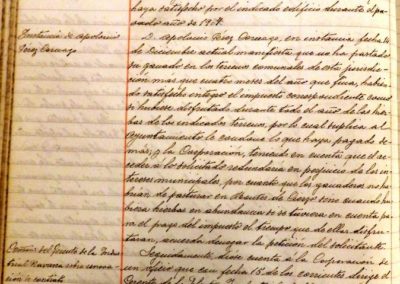 haya satisfecho por el indicado edificio durante el pa-
sado año de 1914.
Instancia de Apolinario
Pérez Carcago.
D. Apolinario Pérez Carcago, en instancia fecha 14
de Diciembre actual manifiesta que no ha pastado
su ganado en los terrenos comunales de esta jurisdic-
ción más que cuatro meses del año que fina, habién-
do satisfecho íntegro el impuesto correspondiente como
si hubiese disfrutado durante todo el año de las hier-
bas de los indicados terrenos, por lo cual suplica al
Ayuntamiento le condone lo que haya pagado de
más; y la Corporación, teniendo en cuenta que el ac-
ceder á lo solicitado redundaría en perjuicio de los in-
tereses municipales, por cuanto que los ganaderos no ha-
brían de pasturar en
hubiera hierbas en abundancia si se tuviera en cuenta para
el pago del impuesto el tiempo que de ellas disfru-
taran, acuerda denegar la petición del solicitante.
Seguidamente dióse cuenta á la Corporación de
un oficio que con fecha 15 de los corrientes dirige el